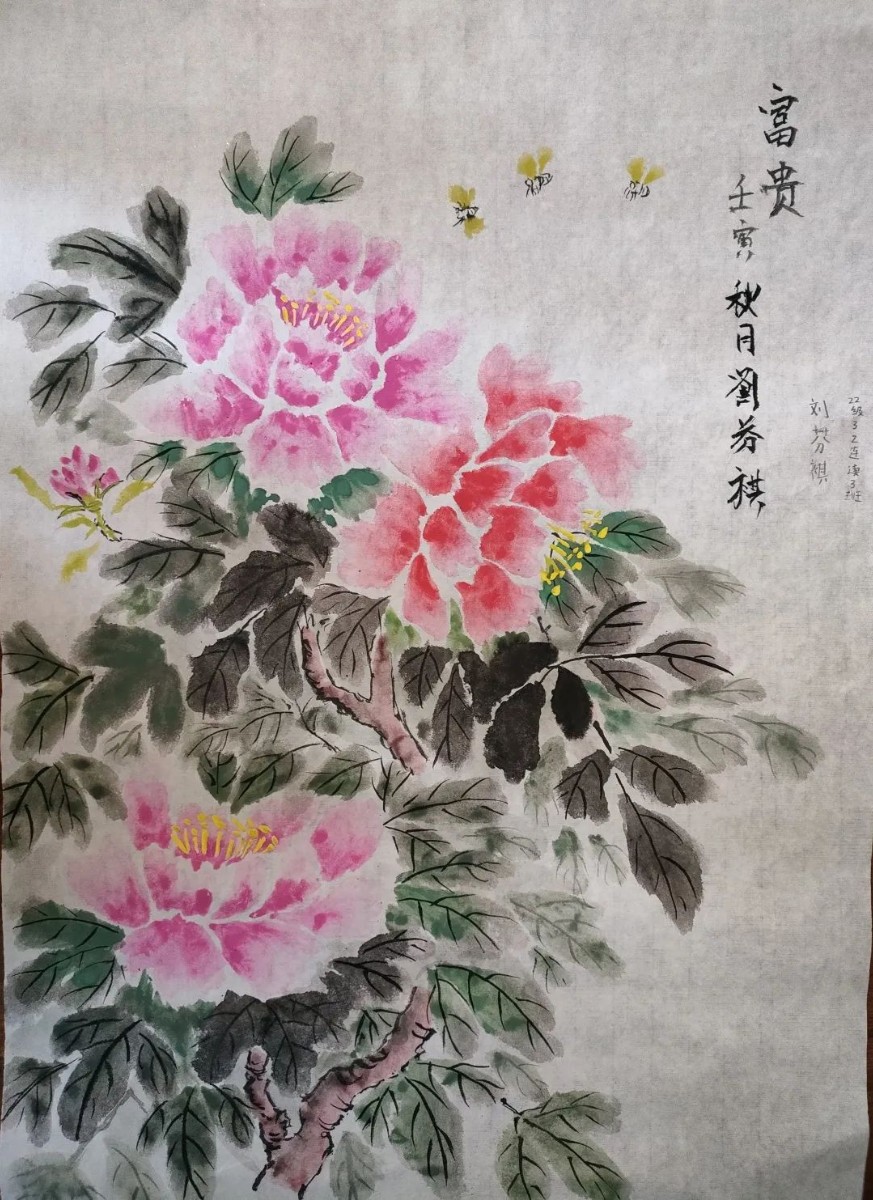 富贵
壬寅秋月劉芬祺
22级32连3班
刘芬祺